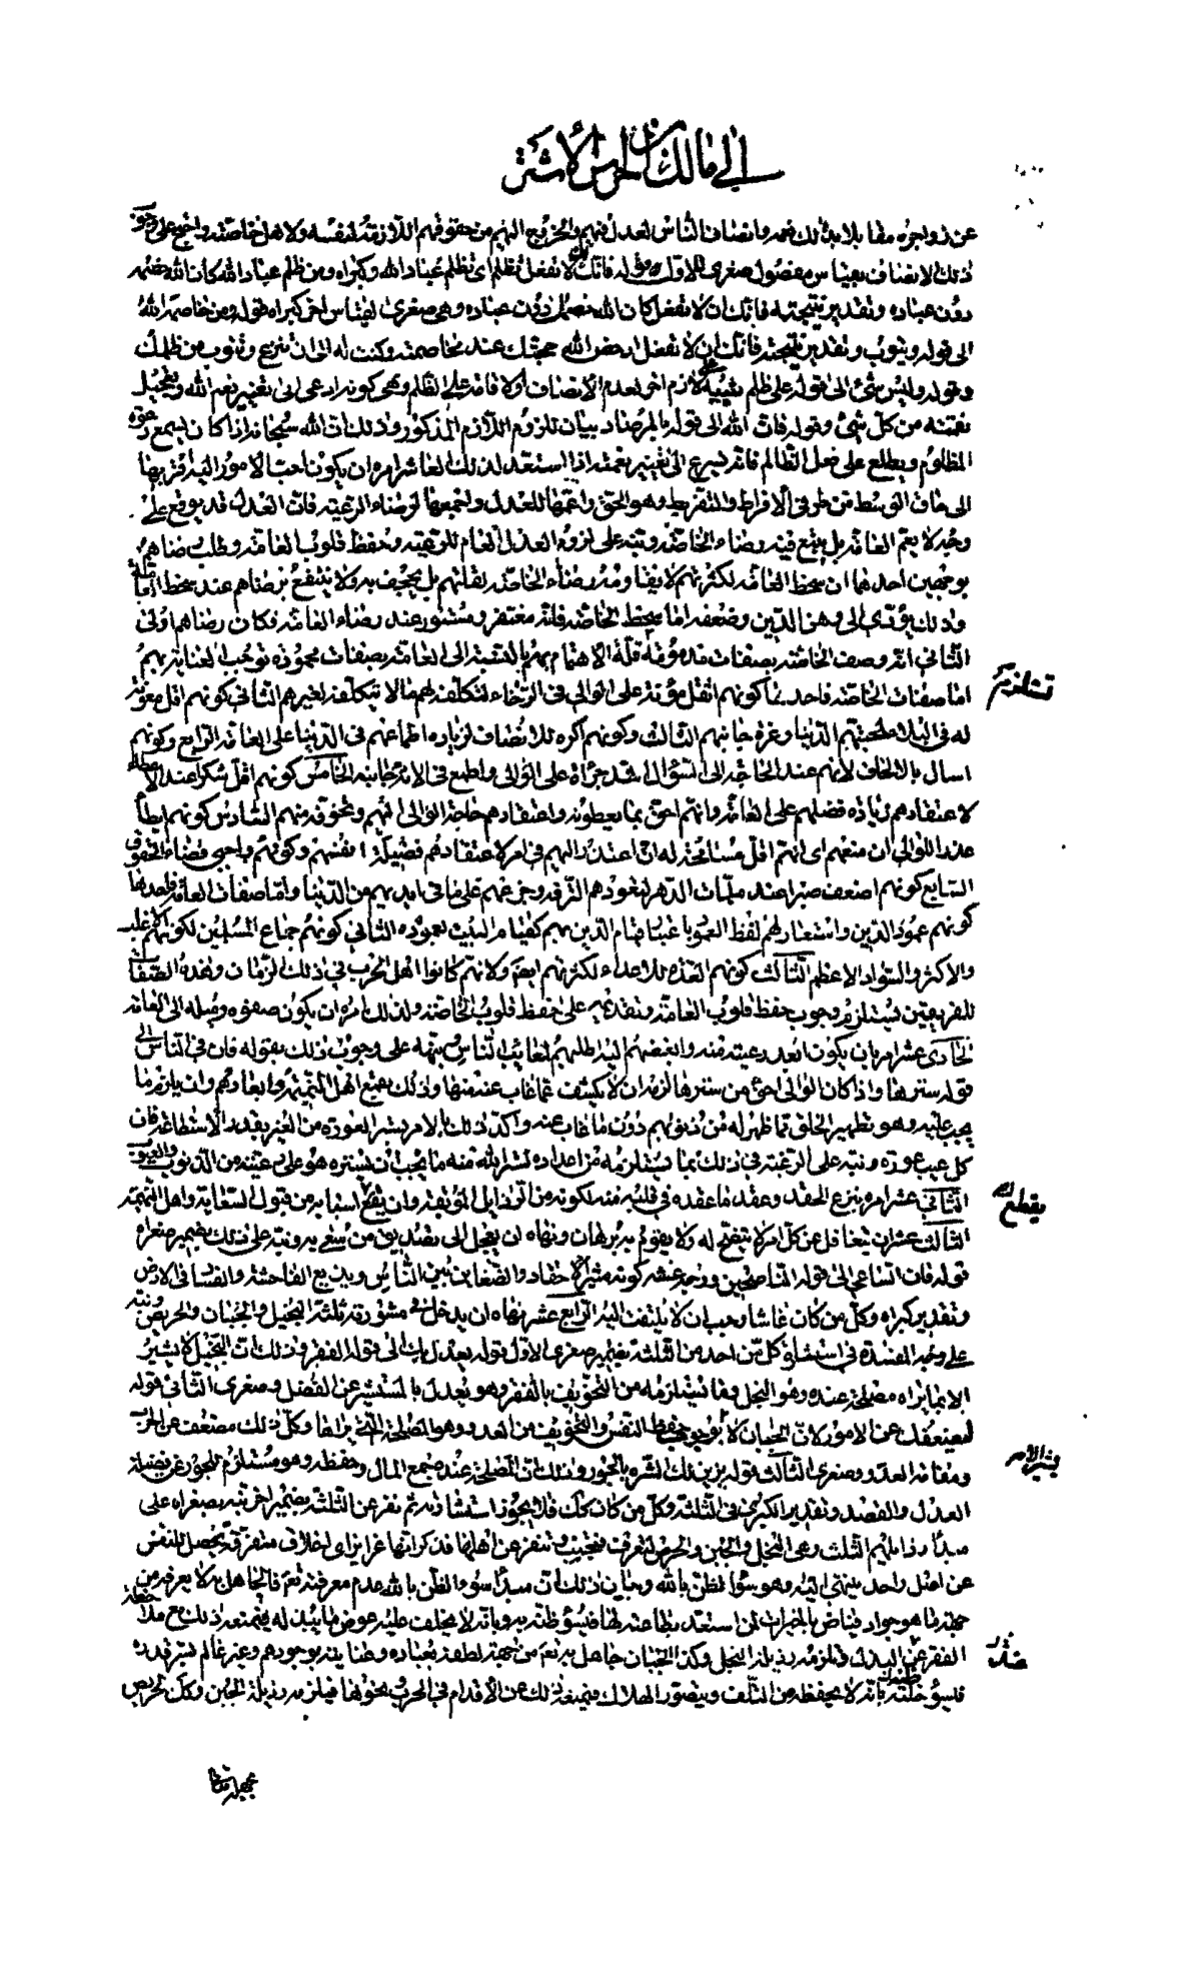 الى مالك بن الحرث الاشتر
عن زواجره مقابلا بذلك نعمه وانصاف الناس لعدل فيهم والخروج اليهم من حقوقهم اللازمة لنفسه ولاهل خاصته واحتج على وجوب
ذلك الانصاف بقياس مفصول صغرى الاول قوله فانك الا تفعل تظلم اى تظلم عباد الله وكبراه ومن ظلم عباد الله كان الله خصمه
دون عباده وتقدير نتيجته فانك ان لا تفعل كان الله خصمك دون عباده وهى صغرى لقياس اخر كبراه قوله ومن خاصمه الله
الى قوله ويتوب وتقدير نتيجته فانك ان لا تفعل ادحض الله حجتك عند مخاصمته وكنت له الى ان تنزع وتتوب من ظلمك
وقوله وليس شئ الى قوله على ظلم تنبيه على لازم اخر لعدم الانصاف او لاقامة على الظلم وهى كونه ادعى الى تغيير نعم الله وتعجيل
نقمته من كل شئ وقوله فان الله الى قوله بالمرصاد بيان للزوم اللازم المذكور وذلك ان الله سبحانه اذا كان يسمع دعوة
المظلوم ويطلع على فعل الظالم فانه يسرع الى تغيير نعمته اذا استعد لذلك العاشر امره ان يكون احب الامور اليه اقربها
الى حاق الوسط من طرفى الافراط والتفريط وهو الحق واعمها للعدل واجمعها لرضاء الرعية فان العدل قد يوقع على
وجه لا يعم العامة بل يتبع فيه رضاء الخاصة ونبه على لزوم العدل العام للرعية وحفظ قلوب العامة وطلب رضاهم
بوجهين احدهما ان سخط العامة لكثرتهم لا يقاومه رضاء الخاصة لقلتهم بل يجحف به ولا ينتفع برضاهم عند سخط العامة
وذلك يؤدى الى وهن الدين وضعفه اما سخط الخاصة فانه مغتفر ومستور عند رضاء العامة فكان رضاهم اولى
الثانى انه وصف الخاصة بصفات مذمومة قلة الاهتمام بهم بالنسبة الى العامة بصفات محمودة توجب العناية بهم
اما صفات الخاصة فاحدها كونهم اثقل مؤنة على الوالى فى الرخاء لتكلفه لهم مالا يتكلفه لغيرهم الثانى كونهم اقل معونة
له فى البلاء لمحبتهم الدنيا وعزة جانبهم الثالث وكونهم اكره للانصاف لزيادة اطماعهم فى الدنيا على العامة الرابع وكونهم
اسال بالالحاف لانهم عند الحاجة الى السؤال اشد جراة على الوالى واطمع فى لين جانبه الخامس كونهم اقل شكرا عند الاعطاء
لاعتقادهم زيادة فضلهم على العامة وانهم احق بما يعطونه واعتقادهم حاجة الوالى اليهم وتخوفه منهم السادس كونهم ابطأ
عذرا للوالى ان منعهم اى انهم اقل مسامحة له ان اعتذر اليهم فى امر لاعتقادهم فضيلة انفسهم وكونهم واجبى قضاء الحقوق
السابع كونهم اضعف صبرا عند ملمات الدهر لتعودهم الترفه وجزعهم على ما فى ايديهم من الدنيا واما صفات العامة فاحدها
كونهم عمود الدين واستعار لهم لفظ العمود باعتبار قيام الدين بهم كقيام البيت بعموده الثانى كونهم جماع المسلمين لكونهم الاغلب
والاكثر والسواد الاعظم الثالث كونهم العدة للاعداء لكثرتهم ايضا ولانهم كانوا اهل الحرب فى ذلك الزمان وهذه الصفات
للفريقين تستلزم وجوب حفظ قلوب العامة وتقديمه على حفظ قلوب الخاصة ولذلك امره ان يكون صغوه وميله الى العامة
الحادى عشر امره بان يكون ابعد رعيته منه وابغضهم اليه اطلبهم لمعايب الناس ونبهه على وجوب ذلك بقوله فان فى الناس الى
قوله سترها واذا كان الوالى احق من سترها لزمه ان لا يكشف عما غاب عنه منها وذلك بمنع اهل النميمة وابعادهم وان يلزم ما
يجب عليه وهو تطهير الخلق مما ظهر له من ذنوبهم دون ما غاب عنه واكد ذلك بالامر بستر العورة من الغير بقدر الاستطاعة فان
كل عيب عورة ونبه على الرغبة فى ذلك بما يستلزمه من اعداده لستر الله منه ما يحب ان يستره هو على رعيته من الذنوب والعيوب
الثانى عشر امره بنزع الحقد وعقد ما عقده فى قلبه منه لكونه من الرذايل الموبقة وان يقطع اسبابه من قبول السعاية واهل النميمة
الثالث عشر ان يتغافل عن كل امر لا يتضح له ولا يقوم به برهان ونهاه ان يعجل الى تصديق من سعى به ونبه على ذلك بضمير صغراه
قوله فان الساعى الى قوله الناصحين ووجه غشه كونه مثير الاحقاد والضغاين بين الناس ويذيع الفاحشة والفساد فى الارض
وتقدير كبراه وكل من كان غاشا وجب ان لا يلتفت اليه الرابع عشر نهاه ان يدخل فى مشورته ثلثة البخيل والجبان والحريص ونبه
على وجه المفسدة فى استشارة كل من احد من الثلثة بضمير صغرى الاول قوله يعدل بك الى قوله الفقر وذلك ان البخيل لا يشير
الا بما يراه مصلحة عنده وهو البخل وما يستلزمه من التخويف بالفقر وهو يعدل بالمستشير عن الفضل وصغرى الثانى قوله
ليضعفك عن الامور لان الجبان لا يشير الا بوجوب حفظ النفس والتخويف من العدو وهو المصلحة التى يراها وكل ذلك مضعف عن الحرب
ومقاومة العدو وصغرى الثالث قوله يزين لك الشره بالجور وذلك ان المصلحة عنده جمع المال وحفظه وهو مستلزم للجور عن فضيلة
العدل والقصد وتقدير الكبرى فى الثلثة وكل من كان كذلك فلا يجوز استشارته ثم نفر عن الثلثة بضمير اخر نبه بصغراه على
مبدأ رذائلهم الثلث وهى البخل والجبن والحرص لتعرف فتجتنب وتنفر عن اهلها فذكر انها غرايز اى اخلاق متفرقة يحصل للنفس
عن اصل واحد ينتهى اليه وهو سوء الظن بالله وبيان ذلك ان مبدأ سوء الظن بالله عدم معرفته تعالى فالجاهل به لا يعرفه من
جهة ما هو جواد فياض بالخيرات لمن استعد بطاعته لها فيسوء ظنه به وبانه لا يخلف عليه عوض ما يبذله فيمنعه ذلك مع ملاحظة
الفقر عن البذل وتلزمه رذيلة البخل وكذلك الجبان جاهل به تعالى من جهة لطفه بعباده وعنايته بوجودهم وغير عالم بسر قدره
فيسوء ظنه بانه لا يحفظه من التلف ويتصور الهلاك فيمنعه ذلك عن الاقدام فى الحروب ونحوها فيلزمه رذيلة الجبن وكذلك الحريص
تستلزم
يقطع
يشير الا